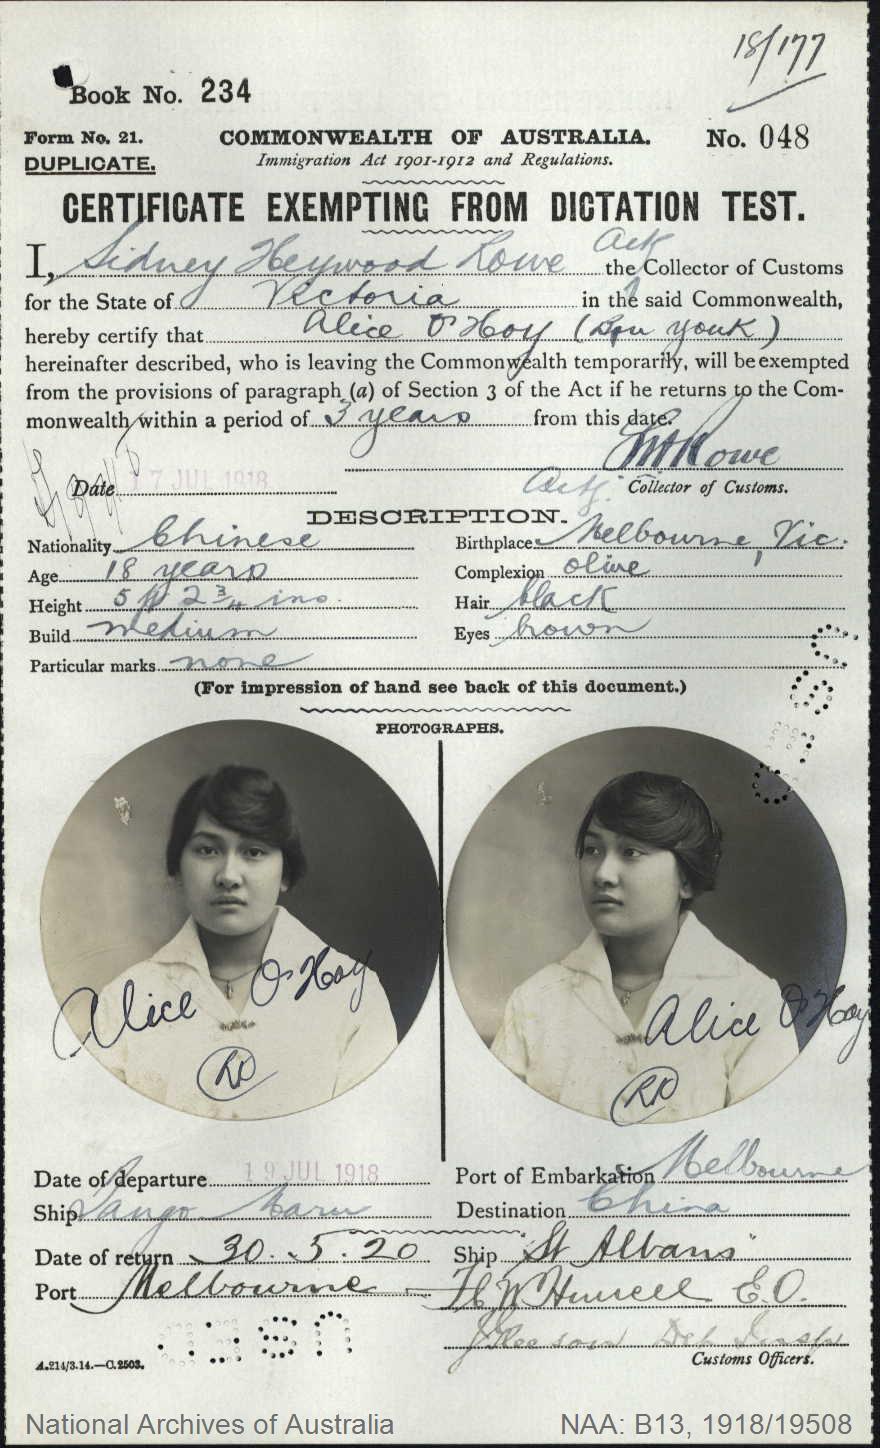 18/177
Book No. 234
Form No. 21. COMMONWEALTH OF AUSTRALIA. No. 048
DUPLICATE. Immigration Act 1901-1912 and Regulations.
CERTIFICATE EXEMPTING FROM DICTATION TEST.
I, Sidney Heywood Rowe Actg the Collector of Customs
for the State of Victoria in the said Commonwealth,
hereby certify that Alice O'Hoy ( Youk)
hereinafter described, who is leaving the Commonwealth temporarily, will be exempted
from the provisions of paragraph (a) of Section 3 of the Act if he returns to the Com-
monwealth within a period of 3 years from this date.
S H Rowe
Date 17 JUL 1918 Actg. Collector of Customs.
DESCRIPTION.
Nationality Chinese Birthplace Melbourne, Vic.
Age 18 years Complexion olive
Height 5 ft 2 3/4 ins. Hair black
Build medium Eyes brown
Particular marks none
(For impression of hand see back of this document.)
PHOTOGRAPHS.
Alice O'Hoy Alice O'Hoy
Date of departure 19 JUL 1918 Port of Embarkation Melbourne
Ship Tango Maru Destination China
Date of return 30.5.20 Ship "St Albans"
Port Melbourne E.O.
Customs Officers.
USED
A.214/3.14.—C.2503.
National Archives of Australia NAA: B13, 1918/19508